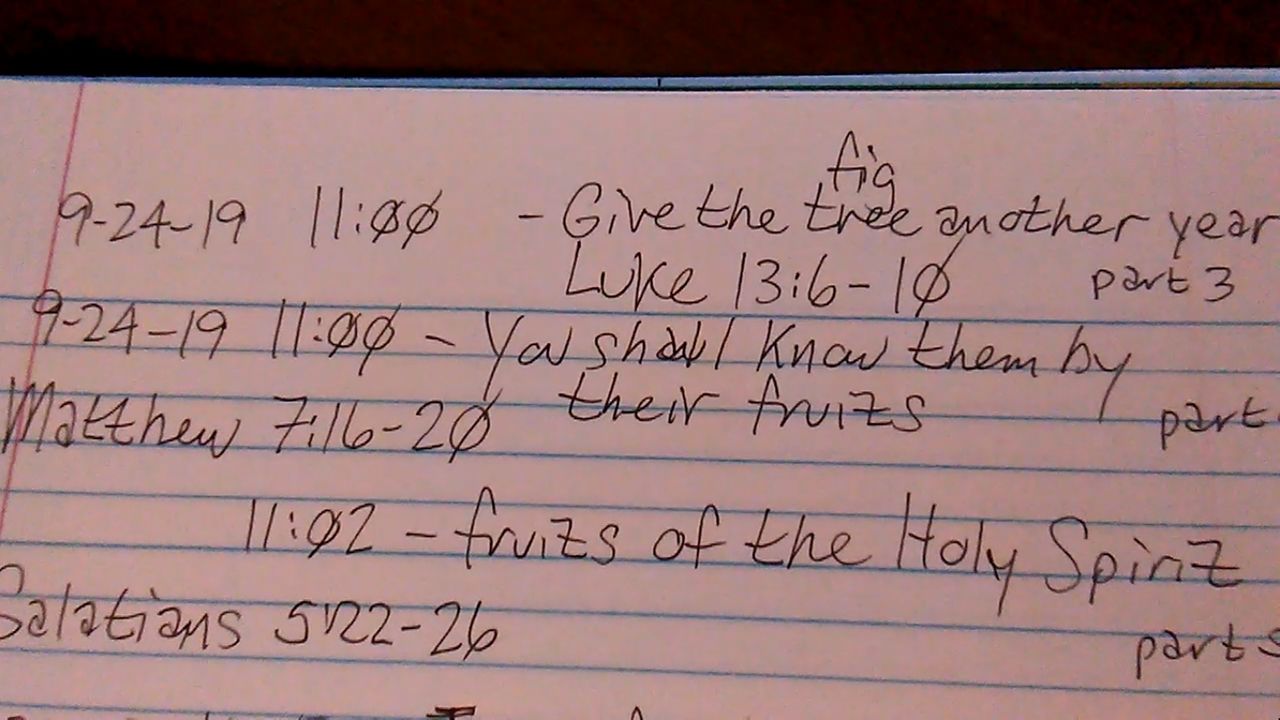 fig
9-24-19 11:00 - Give the tree another year
Luke 13:6-10 part 3
9-24-19 11:00 - You shall know them by
their fruits
Matthew 7:16-20 part
11:02 - fruits of the Holy Spirit
Galatians 5:22-26
part 5